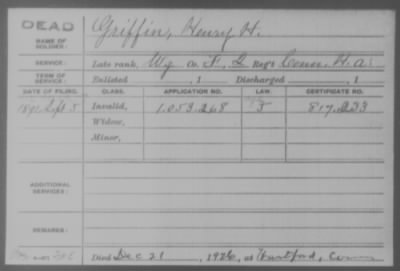 DEAD
NAME OF SOLDIER: Griffin, Henry H.
SERVICE: Late rank, Co. F, 2 Reg't Conn. H. A.
TERM OF SERVICE: Enlisted , 1 Discharged , 1
DATE OF FILING. CLASS. APPLICATION NO. LAW. CERTIFICATE NO.
1891 Sept 5 Invalid, 1.053.268 817.233
Widow,
Minor,
ADDITIONAL SERVICES:
REMARKS:
Died Dec 21 , 1926, at Hartford, Conn